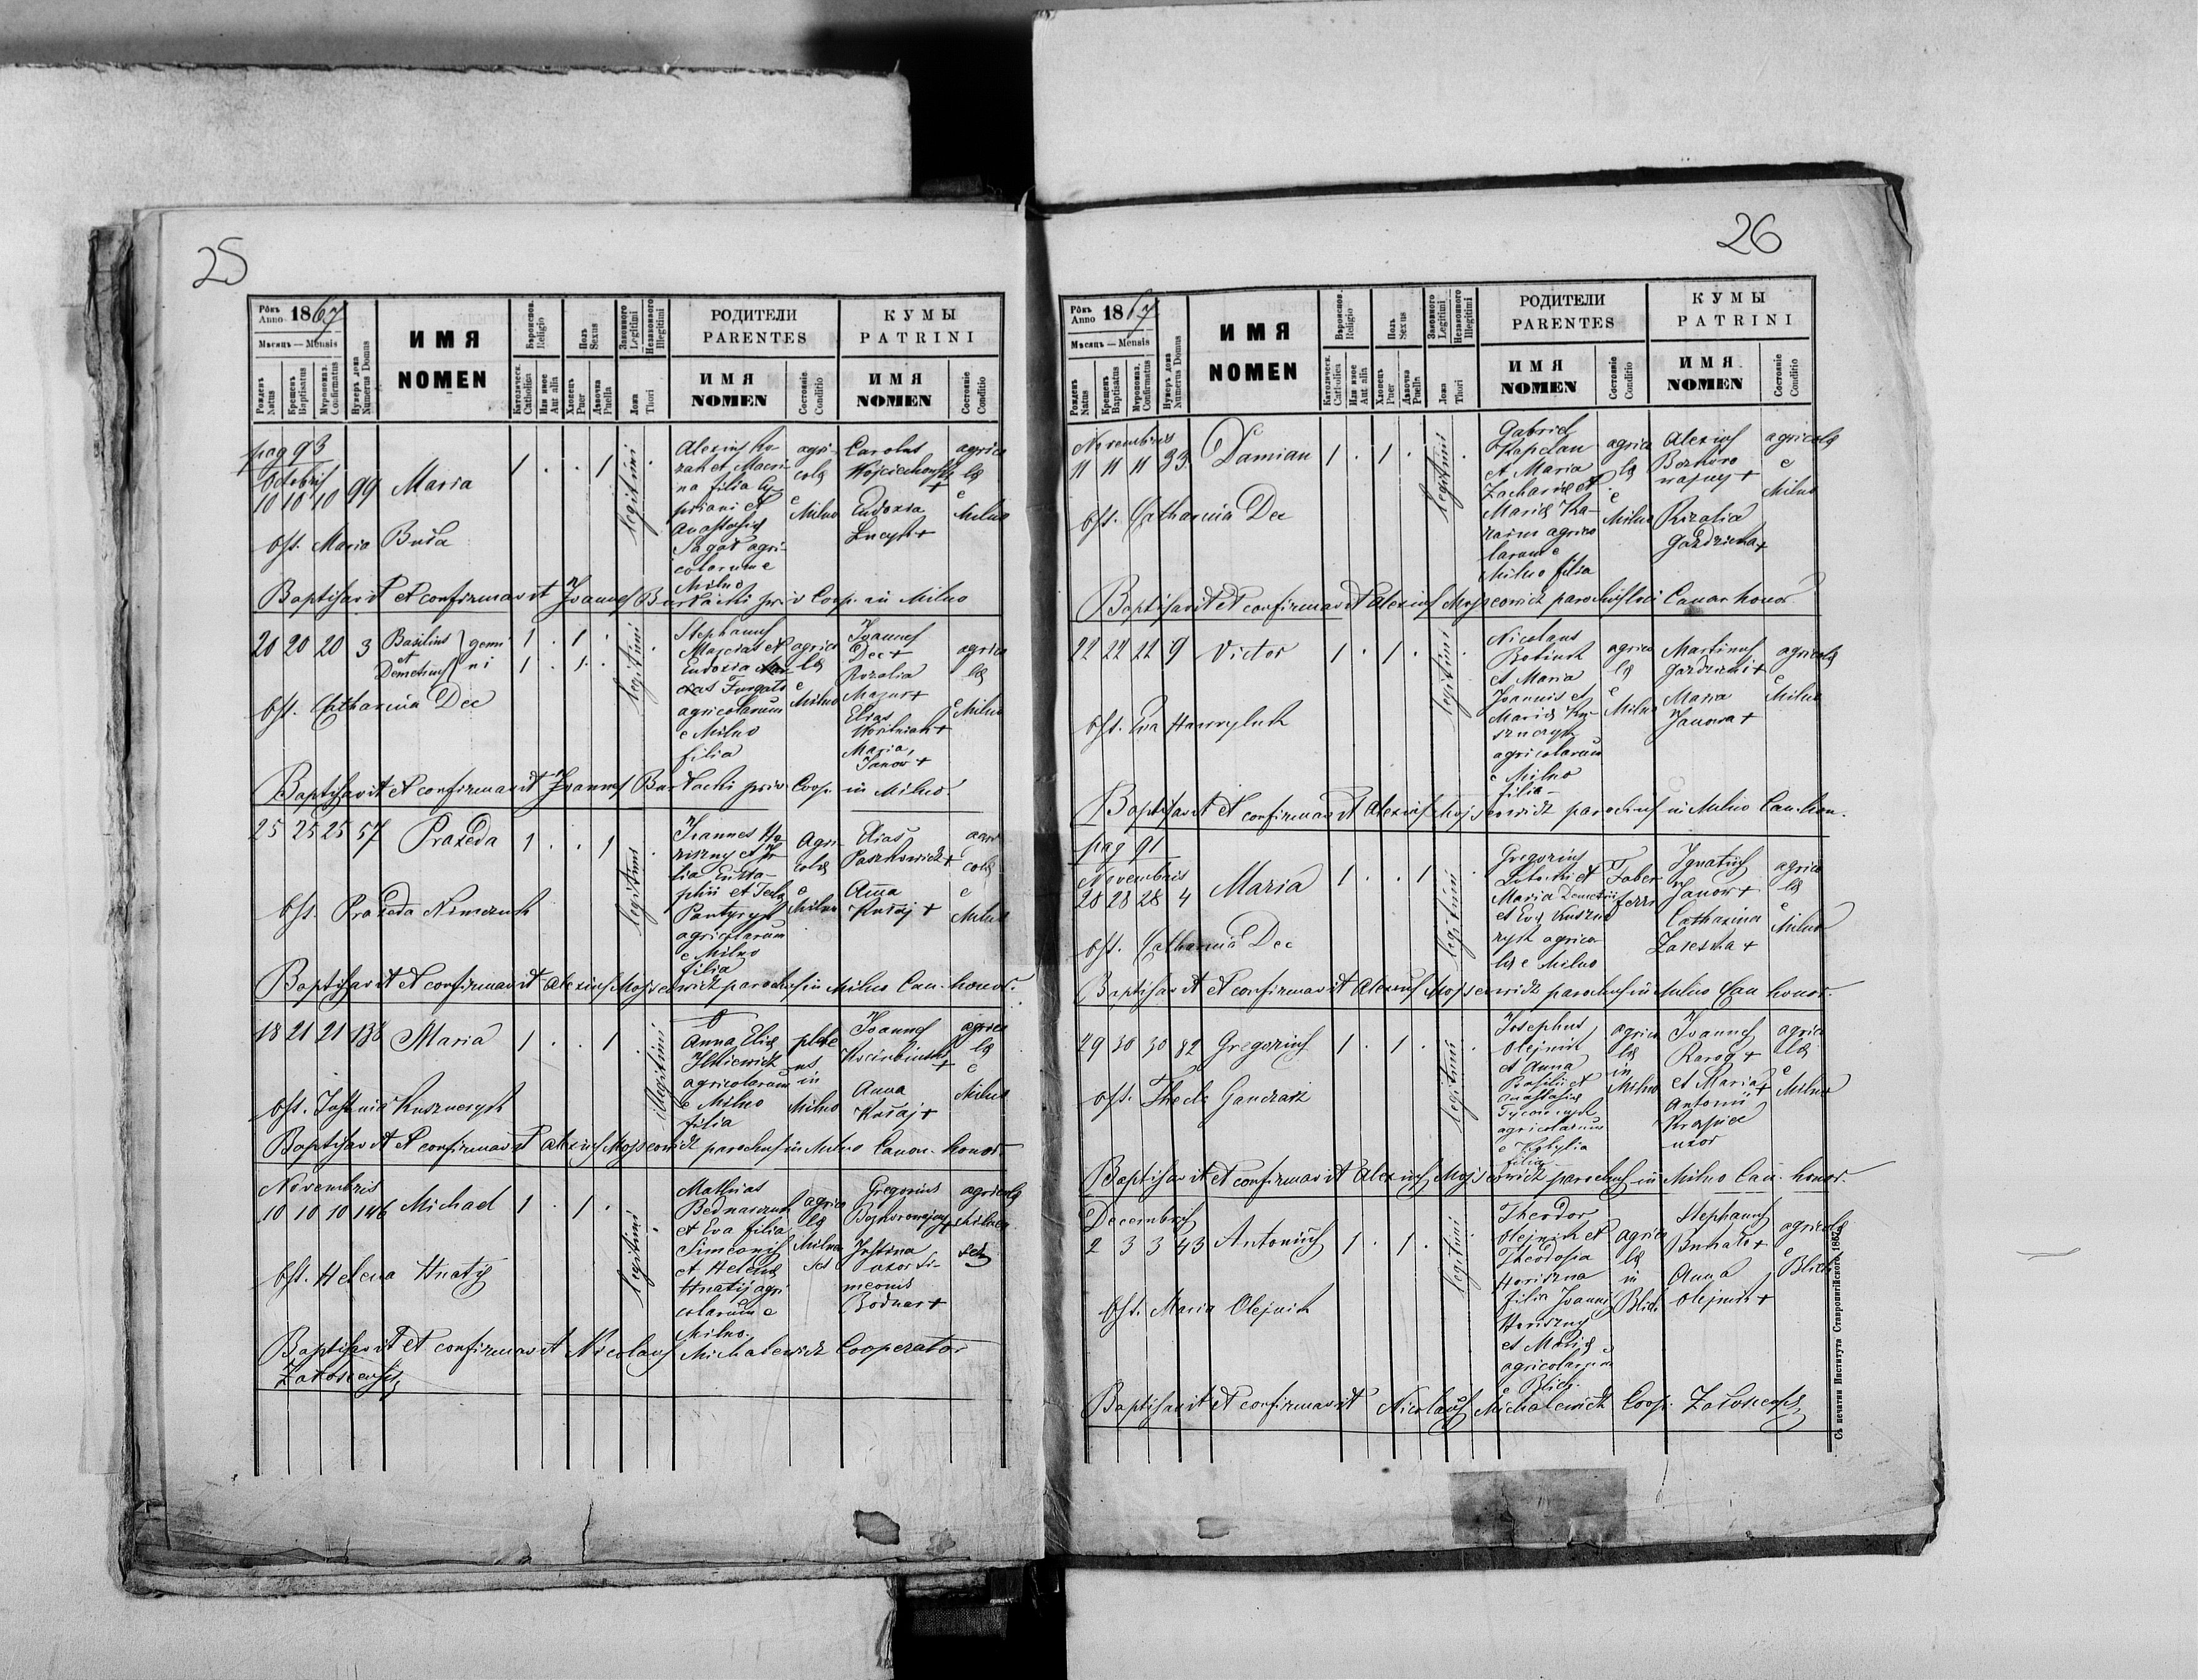 25
Рôкъ Anno 1867
Мѣсяць — Mensis
Рожденъ Natus
Крещенъ Baptisatus
Мѵропомаз. Confirmatus
Нумеръ дома Numerus Domus
ИМЯ NOMEN
Вѣроисповѣ. Religio
Католическ. Catholica
Или иное Aut alia
Полъ Sexus
Хлопецъ Puer
Дѣвочка Puella
Законного Legitimi
Незаконного Illegitimi
Ложа Thori
РОДИТЕЛИ PARENTES
ИМЯ NOMEN
Состояніе Conditio
КУМЫ PATRINI
ИМЯ NOMEN
Состояніе Conditio
pag 93
Octobris
10 10 10 99 Maria 1 . . 1 legitimi .
Alexius
et Macri-
na filia Cy-
priani et
Anastasiae
Sagat agri-
colarum e
Milno
agri-
colae
e
Milno
Carolus
Wojciechowski +
Eudoxia
agrico
lae
e
Milno
Obst. Maria Buła
Baptisavit et confirmavit Joannes priv Coop. in Milno
20 20 20 3 Basilius et Demetrius gemini
1 . 1 . legitimi .
1 . 1 .
Stephanus
et
Eudoxia
agricolarum
e Milno
filia
agrico
lae
e
Milno
Joannes
Dec +
Rozalia
Mazur +
Elias
Maria
Janow +
agrico
lae
e Milno
Obst. Catharina Dec
Baptisavit et confirmavit Joannes priv. Coop. in Milno
25 25 25 57 Praxeda 1 . . 1 legitimi .
Joannes
et
lia Eusta-
phii et Teclae
agricolarum
e Milno
filia
Agri-
colae
e
Milno
Elias
Paszkowicz +
Anna
agri
colae
e
Milno
Obst. Praxeda Nimczuk
Baptisavit et confirmavit Alexius Mojseowicz parochus in Milno Can. honor.
18 21 21 138 Maria 1 . . 1 . illegitimi
Anna Eliae
Ilkiewicz
agricolarum
e Milno
filia
in
Milno
Joannes
Anna
agrico
lae
e
Milno
Obst. Justina Kuszneryk
Baptisavit et confirmavit Alexius Mojseowicz parochus in Milno Canon. honor.
Novembris
10 10 10 146 Michael 1 . 1 . legitimi .
Mathias
Bednarczuk
et Eva filia
Simeonis
et Helenae
Hnatij agri
colarum e
Milno.
agrico
lae
Milno
Gregorius
Justina
uxor Si-
meonis
Bodnar +
agricolae
Obst. Helena Hnatij
Baptisavit et confirmavit Nicolaus Michalewicz Cooperator
Załoscensis
26
Рôкъ Anno 1867
Мѣсяць — Mensis
Рожденъ Natus
Крещенъ Baptisatus
Мѵропомаз. Confirmatus
Нумеръ дома Numerus Domus
ИМЯ NOMEN
Вѣроисповѣ. Religio
Католическ. Catholica
Или иное Aut alia
Полъ Sexus
Хлопецъ Puer
Дѣвочка Puella
Законного Legitimi
Незаконного Illegitimi
Ложа Thori
РОДИТЕЛИ PARENTES
ИМЯ NOMEN
Состояніе Conditio
КУМЫ PATRINI
ИМЯ NOMEN
Состояніе Conditio
Novembris
11 11 11 33 Damian 1 . 1 . legitimi .
Gabriel
Kapelan
et Maria
Zachariae et
Mariae
agrico
larum e
Milno filia
agrico
lae
e
Milno
Alexius
Rozalia
agricolae
e
Milno
Obst. Catharina Dec
Baptisavit et confirmavit Alexius Mojseowicz parochus Canon honor.
22 22 22 9 Victor 1 . 1 . legitimi .
Nicolaus
et Maria
Joannis et
Mariae
agricolarum
e Milno
filia
agrico
lae
e
Milno
Martinus
Maria
Janowa +
agricolae
e
Milno
Obst. Eva Hawryluk
Baptisavit et confirmavit Alexius Mojseowicz parochus in Milno Can. hon.
pag 91
Novembris
28 28 28 4 Maria 1 . . 1 legitimi .
Gregorius
et
Maria Demetrii
et Evae Kuszne
ryk agrico
lae e Milno
Faber
ferr
Ignatius
Janow +
Catharina
Zaleska +
agrico
lae
e
Milno
Obst. Catharina Dec
Baptisavit et confirmavit Alexius Mojseowicz parochus in Milno Can honor.
29 30 30 82 Gregorius 1 . 1 . legitimi .
Josephus
Olejnik
et Anna
Basilii et
Anastasiae
agricolarum
e Kobylia
filia
agrico
lae
in
Milno
Joannes
Karog +
et Maria +
Antonii
uxor
agrico
lae
e
Milno
Obst. Thecla Ganczarz
Baptisavit et confirmavit Alexius Mojseowicz parochus in Milno Can. honor.
Decembris
2 3 3 43 Antonius 1 . 1 . legitimi
Theodor
Olejnik et
Theodosia
Horiszna
filia Joannis
Horiszny
et Mariae
agricolarum
e Blich.
agrico
lae
in
Blich
Stephanus
Anna
Olejnik +
agricolae
e
Blich
Obst. Maria Olejnik
Baptisavit et confirmavit Nicolaus Michalewicz Coop. Załoscensis
Съ печатни Института Ставропигійского, 1862.